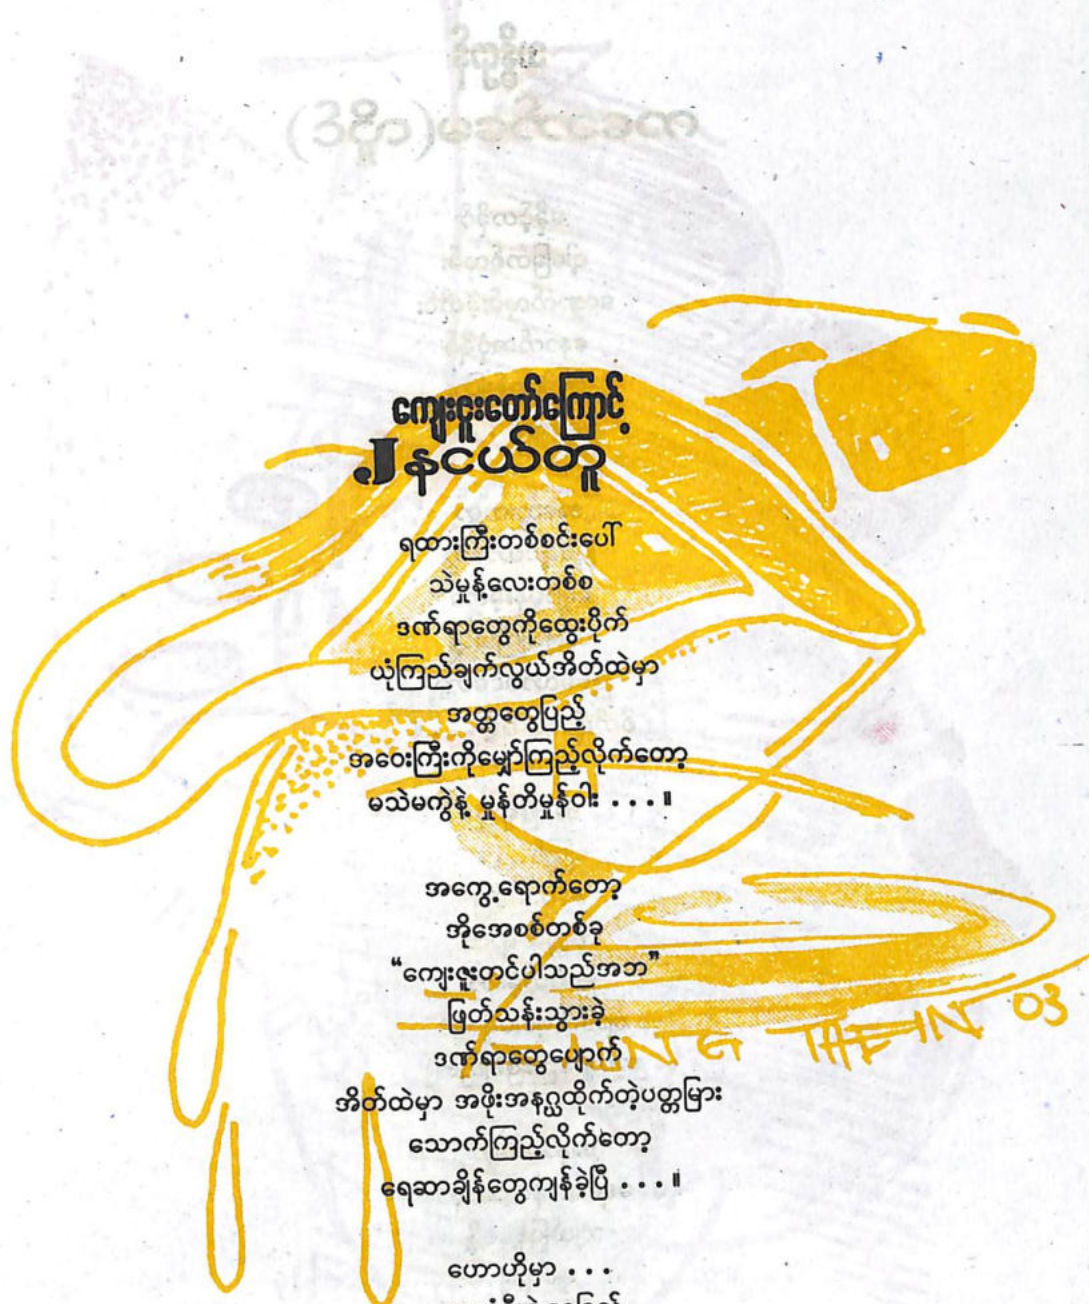 ကျေးဇူးတော်ကြောင့်
နငယ်တူ
ရထားကြီးတစ်စင်းပေါ်
သဲမှုန့်လေးတစ်စ
ဒဏ်ရာတွေကိုထွေးပိုက်
ယုံကြည်ချက်လွယ်အိတ်ထဲမှာ
အတ္တတွေပြည့်
အဝေးကြီးကိုမျှော်ကြည့်လိုက်တော့
မသဲမကွဲနဲ့ မှုန်တိမှုန်ဝါး . . . ။
အကွေ့ရောက်တော့
အိုအေစစ်တစ်ခု
“ကျေးဇူးတင်ပါသည်အဘ”
ဖြတ်သန်းသွားခဲ့
ဒဏ်ရာတွေပျောက်
အိတ်ထဲမှာ အဖိုးအနဂ္ဃထိုက်တဲ့ပတ္တမြား
သောက်ကြည့်လိုက်တော့
ရေဆာချိန်တွေကျန်ခဲ့ပြီ . . . ။
ဟောဟိုမှာ . . .
THEIN 03